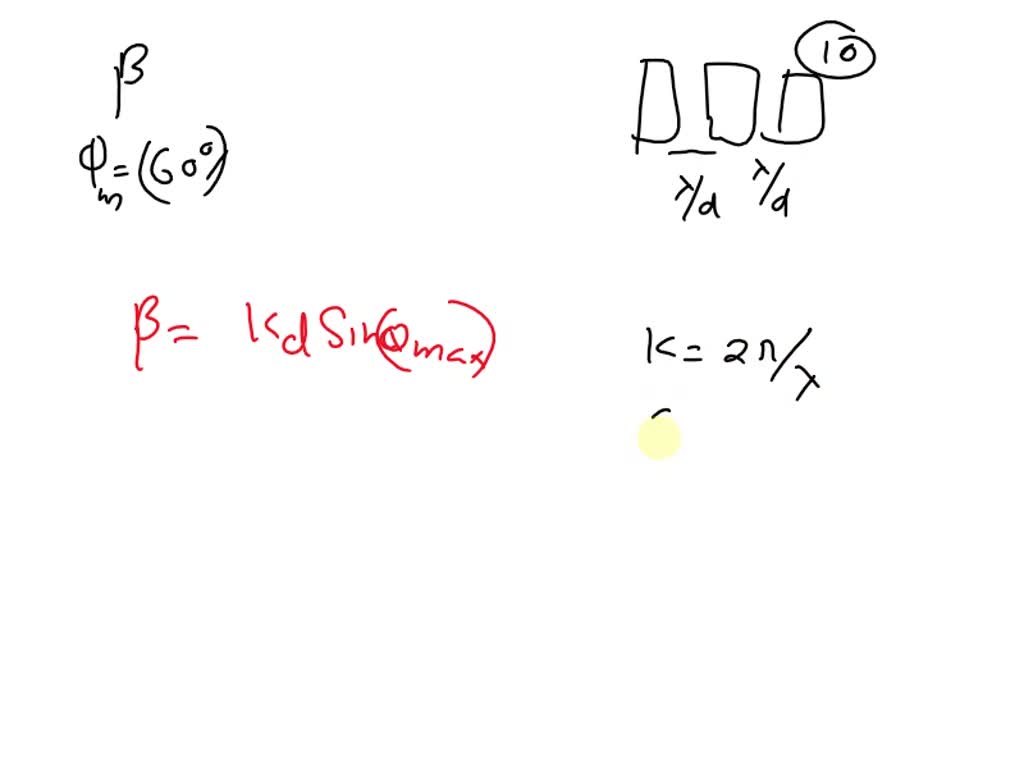 β
φm = (60°)
10
λ/d λ/d
β = Kd Sin(θmax)
K = 2π/λ